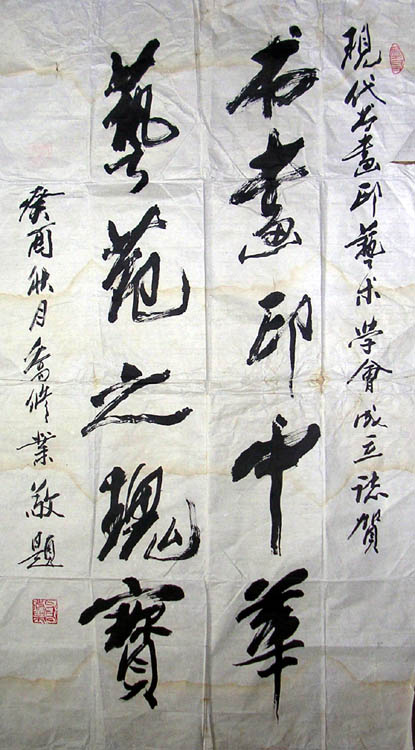 現代书畫印藝术学會成立誌賀
书畫印中華
藝苑之瑰寶
癸酉秋月喬修業敬題